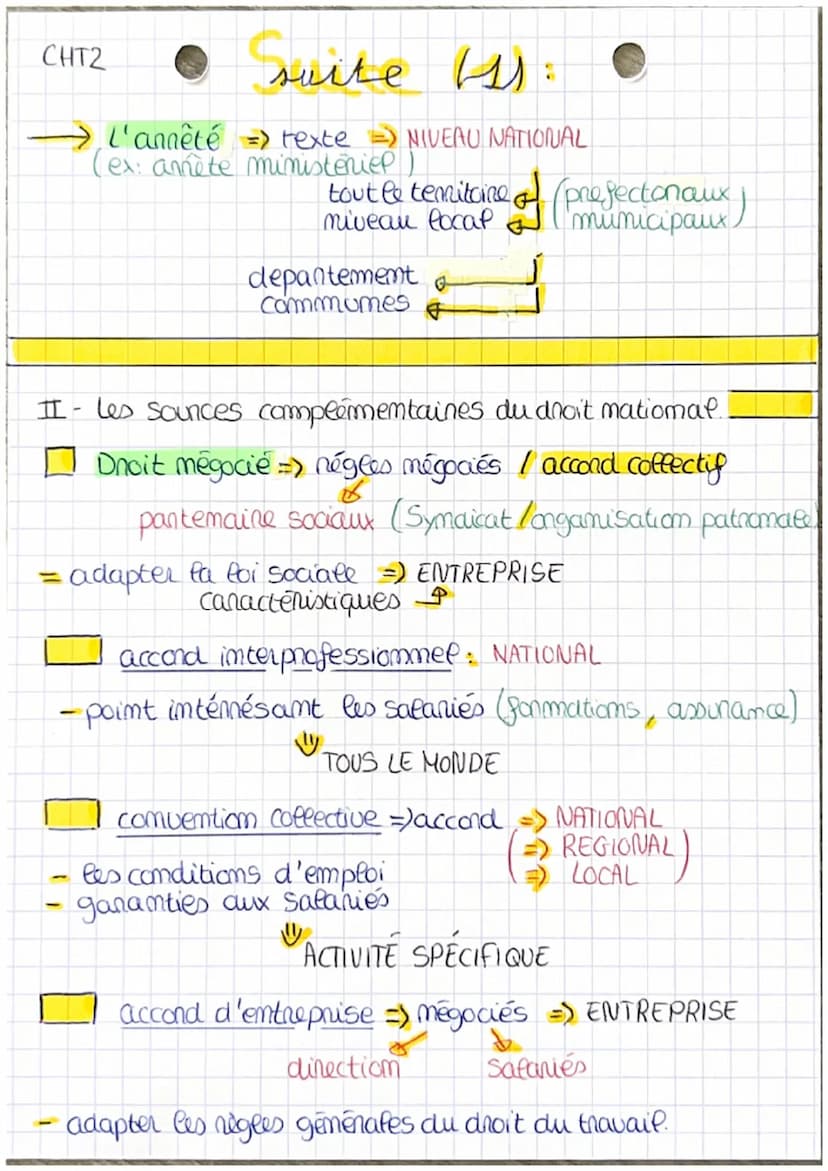 CHT2
Suite (1) :
→ L'arrêté => texte => NIVEAU NATIONAL
(ex: arrête ministériel)
tout le territoire (préfectoraux
niveau local municipaux)
departement
communes
II - Les sources complémentaires du droit national.
Droit négocié => régles négociés / accord collectif
partenaire sociaux (Syndicat/organisation patronale)
= adapter la loi sociale => ENTREPRISE
caractéristiques
accord interprofessionnel : NATIONAL
- point intérrésant les salariés (formations, assurance)
TOUS LE MONDE
convention collective => accord => NATIONAL
(=> REGIONAL)
=> LOCAL
- les conditions d'emploi
- garanties aux salariés
ACTIVITÉ SPÉCIFIQUE
accord d'entreprise => négociés => ENTREPRISE
direction salariés
- adapter les règles générales du droit du travail.